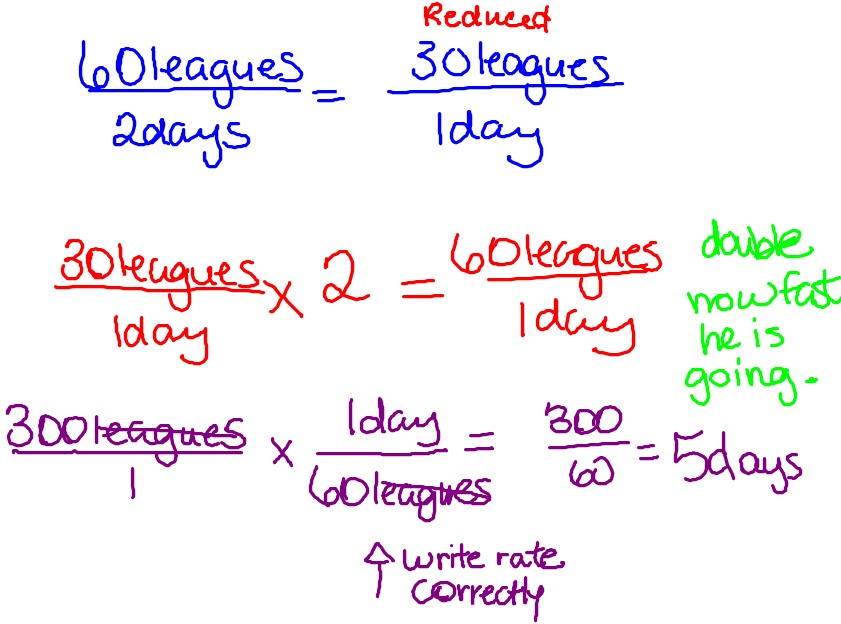 Reduced
60 leagues / 2 days = 30 leagues / 1 day
30 leagues / 1 day × 2 = 60 leagues / 1 day
double
how fast
he is
going.
300 leagues / 1 × 1 day / 60 leagues = 300 / 60 = 5 days
↑ write rate
correctly